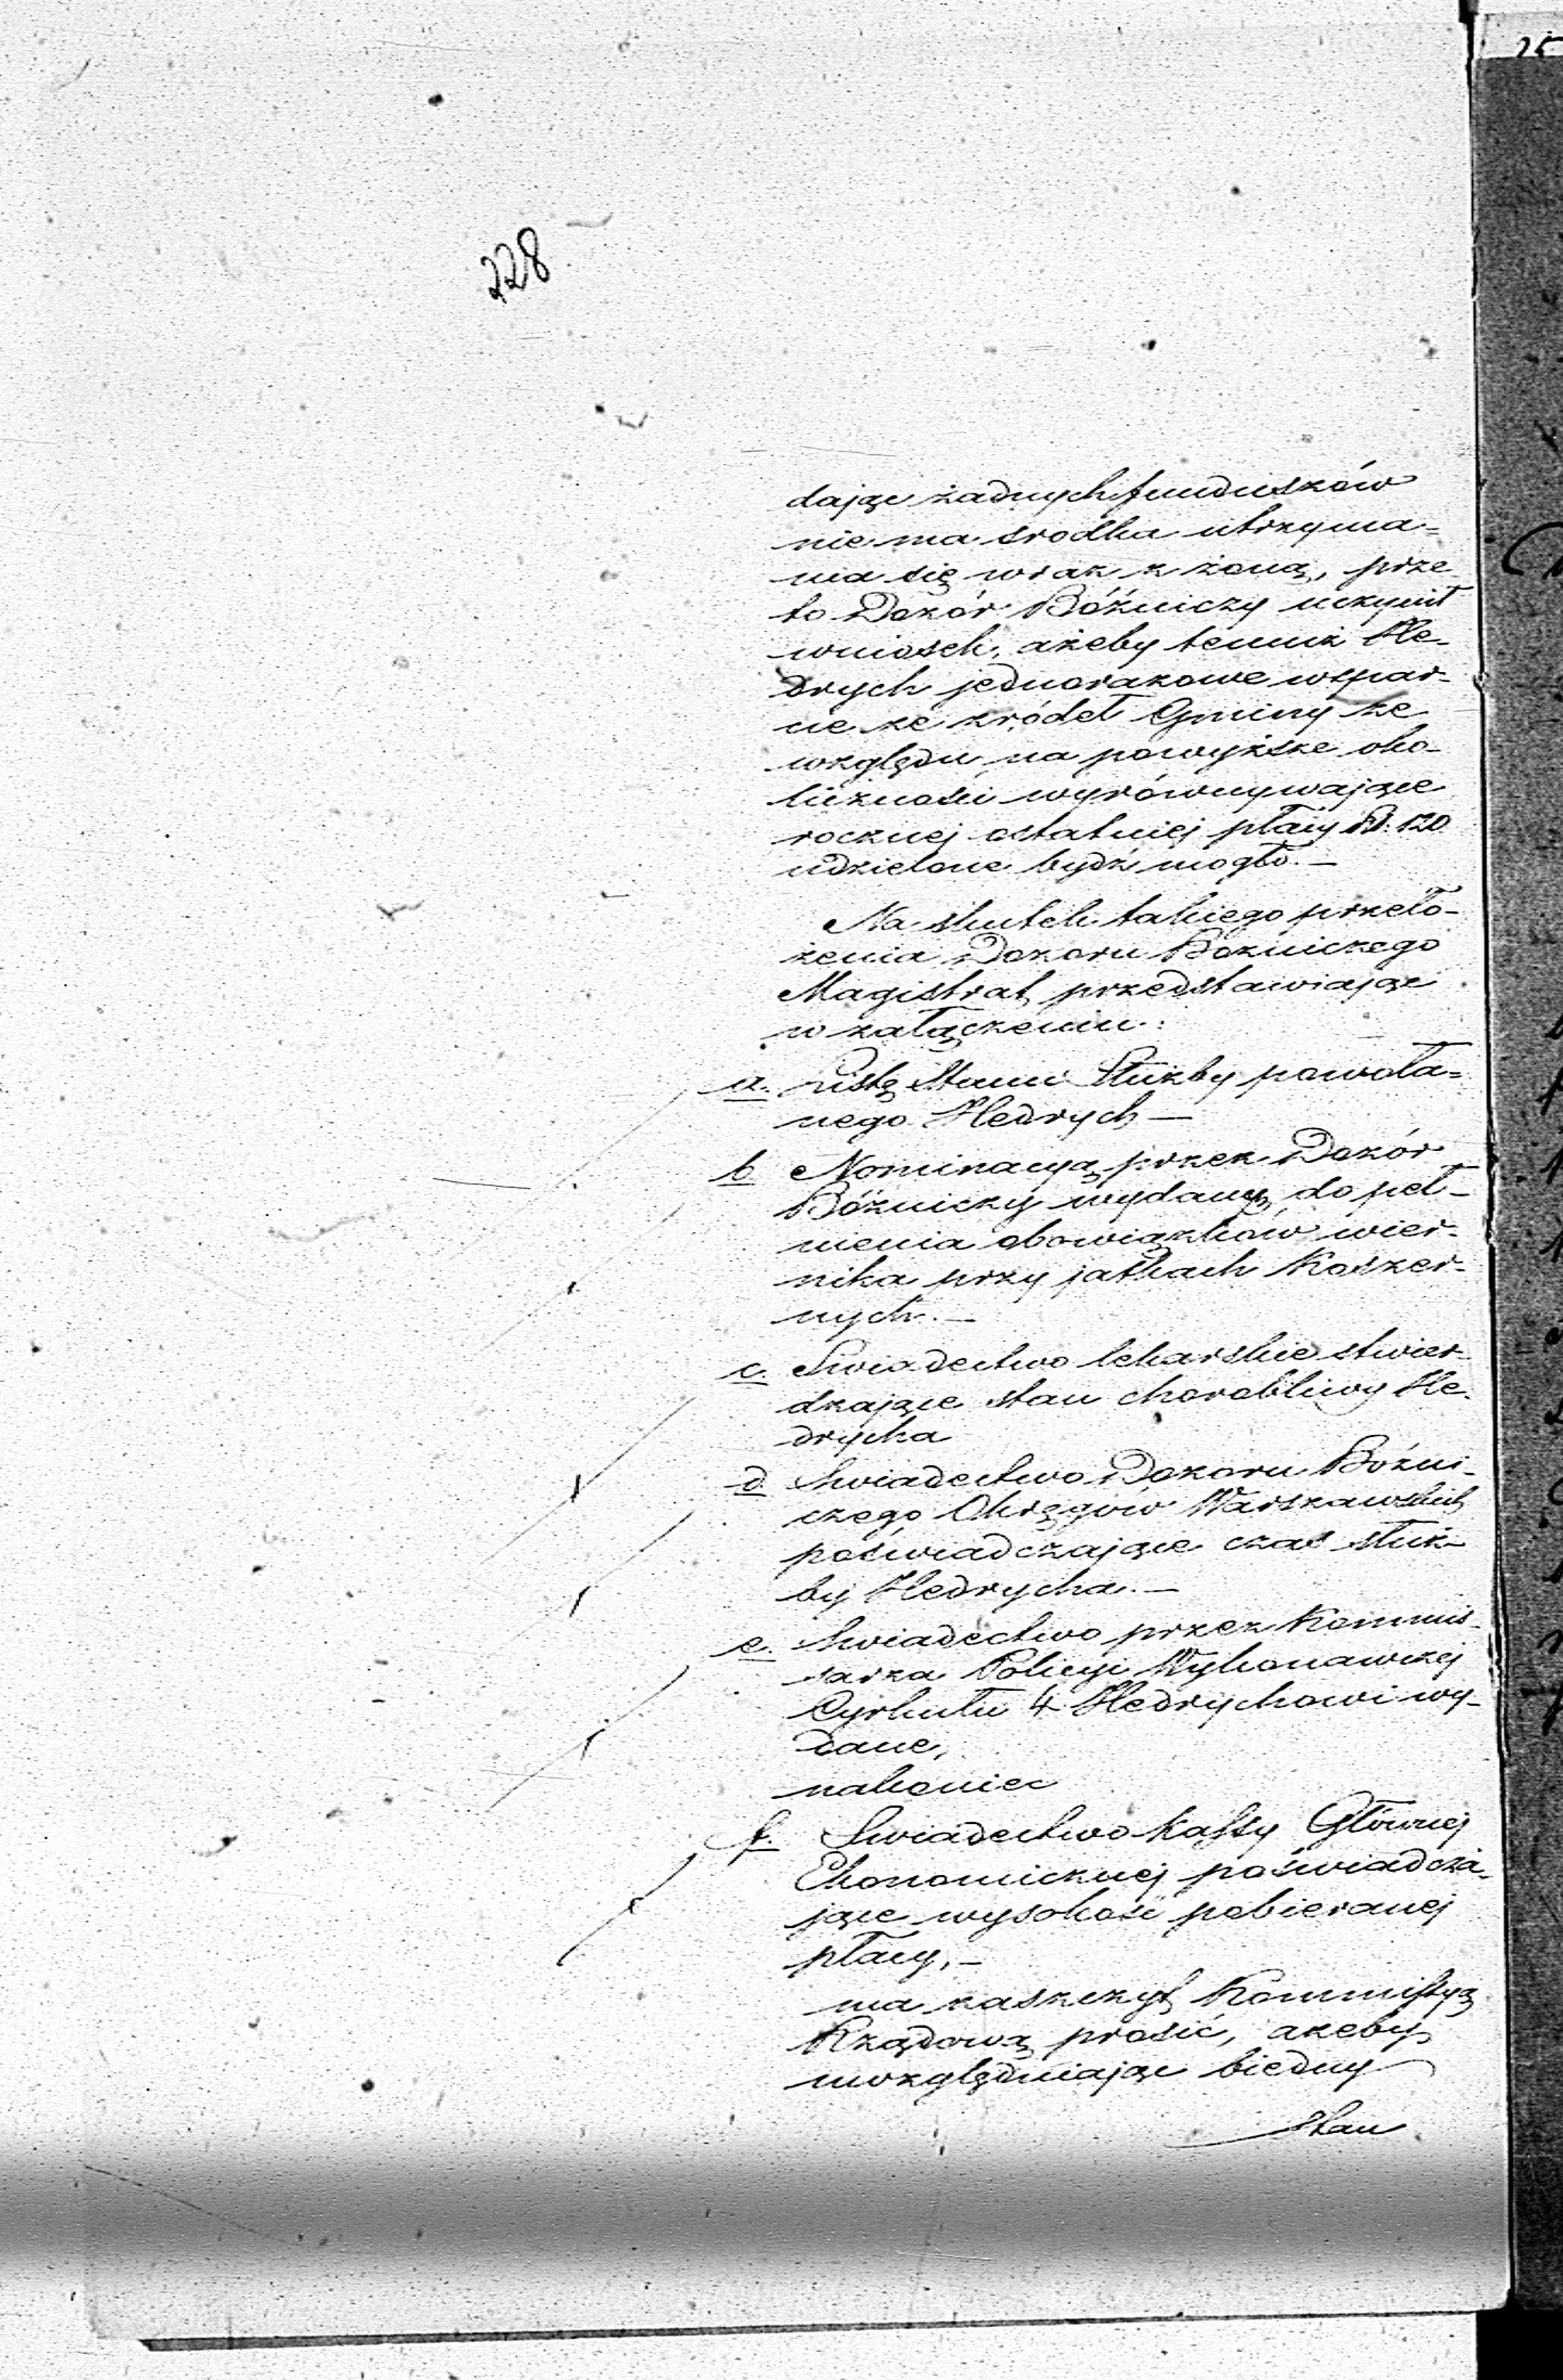 228
dając żadnych funduszów
nie ma srodka utrzyma=
nia się wraz z żoną, prze
to Dozór Bóźniczy uczynił
wniosek, ażeby temuż He-
drych jednorazowe wspar-
cie ze zródeł Gminy ze
względu na powyższe oko-
liczności wyrównywające
rocznej ostatniej płacy Rs: 120
udzielone bydź mogło.—
Na skutek takiego przeło-
żenia Dozoru Bozniczego
Magistrat przedstawiając
w załączeniu:
a. Listę Stanu Służby powoła=
nego Hedrych—
b Nominacyą przez Dozór
Bóżniczy wydaną do peł-
nienia obowiązków wier-
nika przy jatkach Koszer-
nych.—
c. Swiadectwo lekarskie stwier-
dzające stan chorobliwy He-
drycha
d. Swiadectwo Dozoru Bóżni-
czego Okręgów Warszawskich
poświadczające czas służ-
by Hedrycha.—
e. Swiadectwo przez Kommis-
sarza Policyi Wykonawczej
Cyrkułu 4 Hedrychowi wy-
dane,
nakoniec
f. Swiadectwo Kassy Głównej
Ekonomicznej poświadcza-
jące wysokość pobieranej
płacy,—
ma zaszczyt Kommissyą
Rządową prosić, azeby
uwzględniając biedny
stan
25